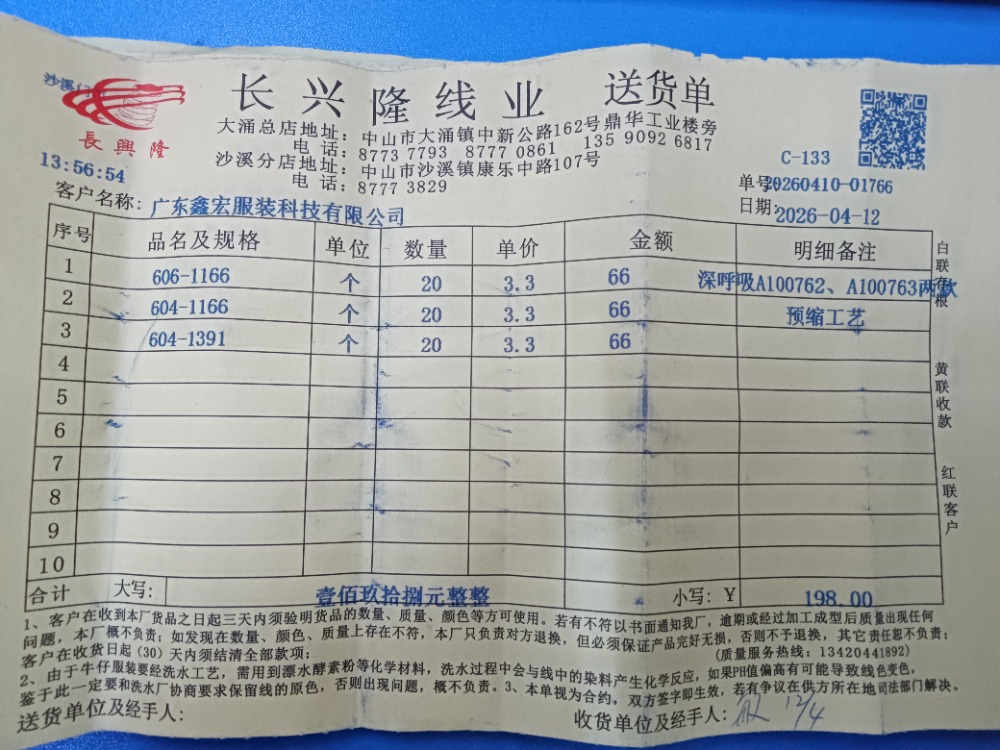 沙溪
長興隆
长兴隆线业 送货单
大涌总店地址：中山市大涌镇中新公路162号鼎华工业楼旁
电话：8773 7793 8777 0861 135 9092 6817
沙溪分店地址：中山市沙溪镇康乐中路107号
电话：8777 3829
13:56:54
C-133
单号20260410-01766
客户名称：广东鑫宏服装科技有限公司
日期：2026-04-12
序号 品名及规格 单位 数量 单价 金额 明细备注
1 606-1166 个 20 3.3 66 深呼吸A100762、A100763两款
2 604-1166 个 20 3.3 66 预缩工艺
3 604-1391 个 20 3.3 66
4
5
6
7
8
9
10
合计 大写：壹佰玖拾捌元整整 小写：￥198.00
白联存根
黄联收款
红联客户
1、客户在收到本厂货品之日起三天内须验明货品的数量、质量、颜色等方可使用。若有不符以书面通知我厂，逾期或经过加工成型后质量出现任何
问题，本厂概不负责；如发现在数量、颜色、质量上存在不符，本厂只负责对方退换，但必须保证产品完好无损，否则不予退换，其它责任恕不负责；
客户在收货日起(30)天内须结清全部款项； (质量服务热线：13420441892)
2、由于牛仔服装要经洗水工艺，需用到漂水酵素粉等化学材料，洗水过程中会与线中的染料产生化学反应，如果PH值偏高有可能导致线色变色，
鉴于此一定要和洗水厂协商要求保留线的原色，否则出现问题，概不负责。3、本单视为合约，双方签字即生效，若有争议在供方所在地司法部门解决。
送货单位及经手人： 收货单位及经手人： 12/4